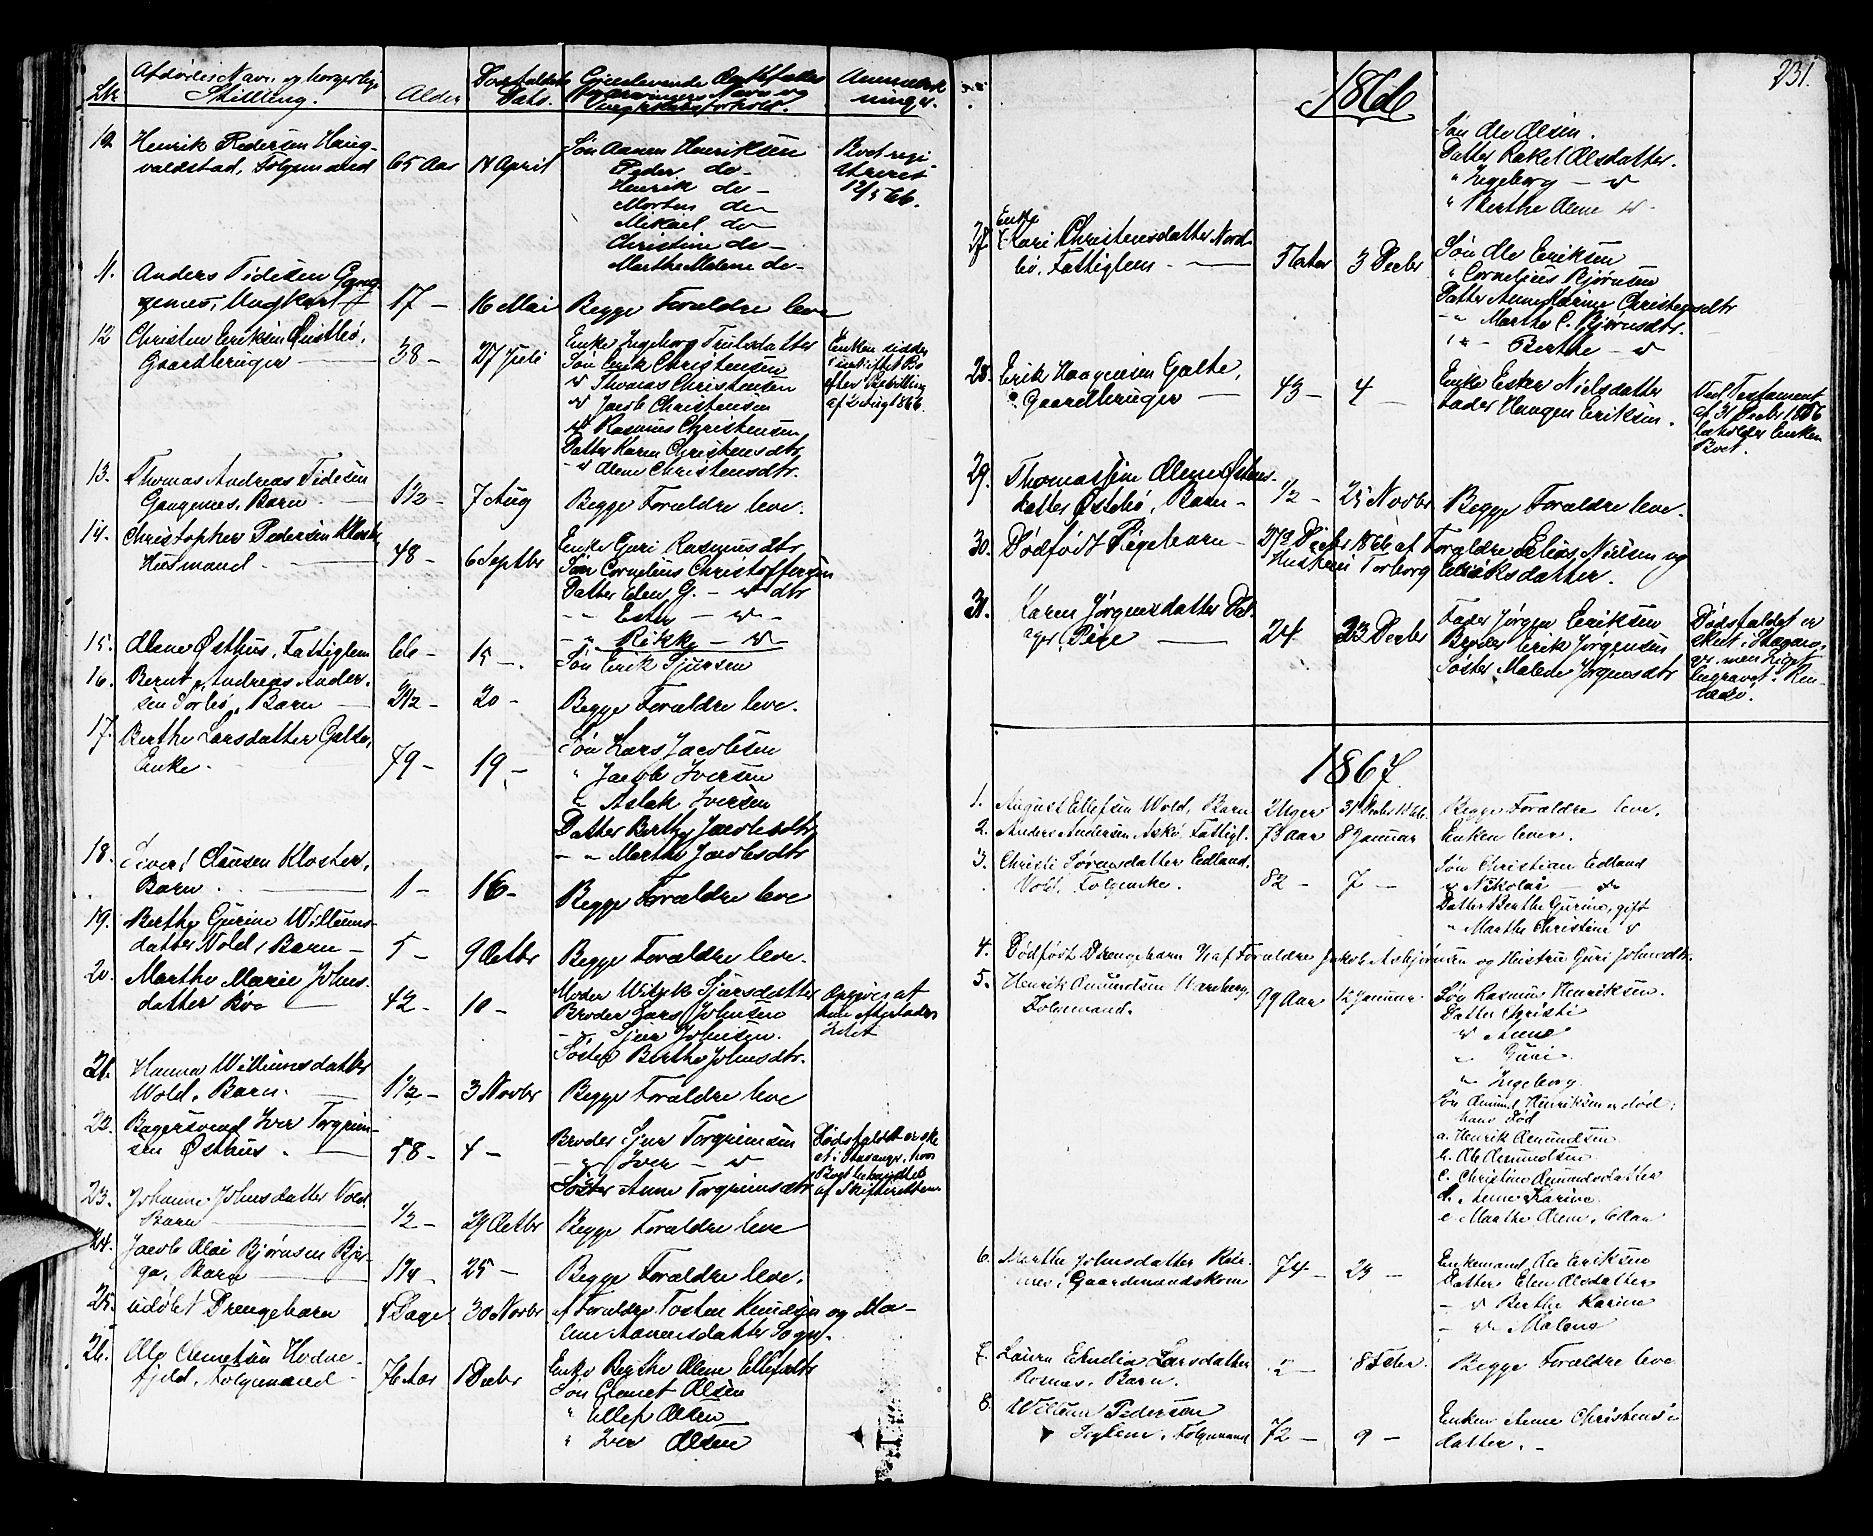 Afdødes Navn og borgerlige
Stilling.
Alder
Dødsfaldets
Dato.
Gjenlevende Ægtefælles
Navn og
Anmærk
ninger.
10
Henrik Pedersen Haug-
valdstad, Folgemand
65 Aar
14 April
Søn Aanen Henriksen
Peder do-
Henrik do-
Morten do-
Mikael do
Christine do-
Marthe Malene do-
Boet regi
streret
12/5 66.
11.
Anders Tidesen Gang-
enes, Ungkarl
17 -
16 Mai
Begge Forældre leve
12
Christen Eriksen Østbø,
Gaardbruger
38 -
27 Juli
Enke Ingeborg Trulsdatter
Søn Erik Christensen
" Thomas Christensen
" Jacob Christensen
" Rasmus Christensen
Datter Karen Christensdtr
- " Olene Christensdtr.
Enken sidder
i uskiftet Bo
efter Bevilling
af 2 Aug 1866
13.
Thomas Andreas Tidesen
Gangenes, Barn
1 1/2 -
7 Aug
Begge Forældre leve.
14.
Christopher Pedersen Kloster
Husmand
48 -
6 Septbr
Enke Guri Rasmusdtr
Søn Cornelius Christoffersen
Datter Elen G. - " dtr
- - Ester - " -
- " Rikke - " -
15.
Olene Østhus, Fattiglem
66 -
15 -
Søn Erik Sjursen
16.
Bernt Andreas Ander-
sen Sørbø, Barn
2 1/2 -
20 -
Begge Forældre leve.
17.
Berthe Larsdatter Galte,
Enke -
79 -
19 -
Søn Lars Jacobsen
" Jacob Iversen
" Aslak Iversen
Datter Berthe Jacobsdtr
- " Marthe Jacobsdtr
18.
Sivert Clausen Kloster,
Barn
1 -
16 -
Begge Forældre leve
19.
Berthe Gurine Willums-
datter Vold, Barn -
5 -
9 Octbr
Begge Forældre leve.
20.
Marthe Marie Johns-
datter
42 -
10 -
Moder Sjursdatter
Broder Lars Johnsen
- Sjur Johnsen.
Søster Berthe Johnsdtr.
Opgives at
have efterladt
Intet
21.
Hanna Willumsdatter
Wold, Barn.
1 1/2 -
3 Novbr
Begge Forældre leve
22.
Bagersvend Iver Torgrim-
sen Østhus.
58 -
4 -
Broder Sjur Torgrimsen
- " Iver - "
Søster Anne Torgrimsdtr
Dødsfaldet er ske
et i Stavanger, hvor
Boet behandles
af Skifteretten
23.
Johanne Johnsdatter Vold
Barn
1/2 -
29 Octbr
Begge Forældre leve
24.
Jacob Olai Bjørnsen Bjer-
ga, Barn
1 1/4 -
25 -
Begge Forældre leve.
25.
udøbt Drengebarn
4 Dage
30 Novbr
af Forældre Tosten Knudsen og Ma-
lene Aanensdatter Sogn.
26.
Ole Clemetsen Hodne-
fjeld, Folgemand -
76 Aar
1 Decbr
Enke Berthe Olene Ellefsdtr
Søn Clemet Olsen
" Ellef Olsen
" Iver Olsen
231.
1866
Søn Ole Olsen.
Datter Rakel Olsdatter.
" Ingeborg - "
" Berthe Olene "
27.
Enke
Kari Christensdatter Nord-
bø, Fattiglem -
71 Aar
3 Decbr
Søn Ole Eriksen
" Cornelius Bjørnsen
Datter Anne Karine Christensdtr
- " Marthe C. Bjørnsdtr.
- " - Berthe - "
28.
Erik Haagensen Galte,
Gaardbruger -
43 -
4 -
Enke Ester Nielsdatter
Fader Haagen Eriksen.
Ved Testament
af 31 Decbr 1856
beholder Enken
Boet.
29.
Thomassine Olene Østens-
datter Østebø, Barn -
1/2 -
25 Novbr
Begge Forældre leve.
30.
Dødfødt Pigebarn -
27/2 Decbr 1866 af Forældre Elias Nielsen og
Hustru Torborg Eriksdatter.
31.
Karen Jørgensdatter
Pige
24
23 Decbr
Fader Jørgen Eriksen
Broder Erik Jørgensen
Søster Malene Jørgensdtr
Dødsfaldet er
skeet i Stavang-
er, men Liget
begravet i Ren-
nesø.
1867.
1.
August Ellefsen Wold, Barn
2 Uger
31 Decbr 1866.
Begge Forældre leve.
2.
Anders Andersen Askø, Fattigl.
73 Aar
8 Januar
Enken lever.
3.
Christi Sørensdatter Edland.
Vold, Folgenke.
82 -
7 -
Søn Christian Edland
" Nikolai - "
Datter Berthe Gurine, gift
" Marthe Christine "
4.
Dødfødt Drengebarn af Forældre Jakob Asbjørnsen og Hustru Guri Johnsdtr.
5.
Henrik Omundsen Wareberg,
Folgemand.
99 Aar
12 Januar.
Søn Rasmus Henriksen.
Datter Christi
" Anne
" Guri.
" Ingeborg.
Søn Omund Henriksen er død;
hans
a. Henrik Omundsen
b. Ole Omundsen.
c. Christine Omundsdatter
d. Anne Karine
e. Marthe Olene, 6 Aar
6.
Marthe Johnsdatter
Gaardmandskone
74 -
23 -
Enkemand Ole Eriksen
Datter Elen Olsdatter
- " Berthe Karine
- " Malene
7.
Laura Ekndia Larsdatter
Rosnæs, Barn.
8 Febr.
Begge Forældre leve
8.
Willum Pedersen
Seglem, Folgemand
72 -
9 -
Enken Anne Christens-
datter. -